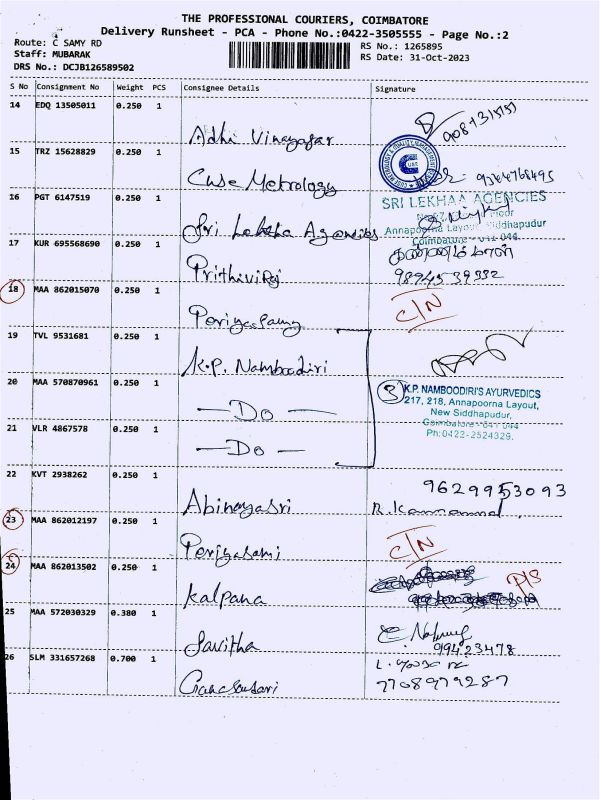 THE PROFESSIONAL COURIERS, COIMBATORE
Delivery Runsheet - PCA - Phone No.:0422-3505555 - Page No.:2
Route: C SAMY RD
Staff: MUBARAK
DRS No.: DCJB126589502
RS No.: 1265895
RS Date: 31-Oct-2023
S No Consignment No Weight PCS Consignee Details Signature
14 EDQ 13505011 0.250 1
Adhi Vinayagar
15 TRZ 15628829 0.250 1
Cuse Metrology
16 PGT 6147519 0.250 1
SRI LEKHAA AGENCIES
Floor
Annapoorna Layout, Siddhapudur
Coimbatore - 641 044
Sri Lekha Agencies
17 KUR 695568690 0.250 1
Prithiviraj
9894539332
18 MAA 862015070 0.250 1
C/N
Periyasamy
19 TVL 9531681 0.250 1
K.P. Namboodiri
20 MAA 570870961 0.250 1
3 K.P. NAMBOODIRI'S AYURVEDICS
217, 218, Annapoorna Layout,
New Siddhapudur,
Coimbatore - 641 044
Ph:0422-2524329.
— Do —
21 VLR 4867578 0.250 1
— Do —
22 KVT 2938262 0.250 1
9629953093
Abinayasri
23 MAA 862012197 0.250 1
C/N
Periyasami
24 MAA 862013502 0.250 1
P/S
Kalpana
25 MAA 572030329 0.380 1
Savitha
26 SLM 331657268 0.700 1
7708979287